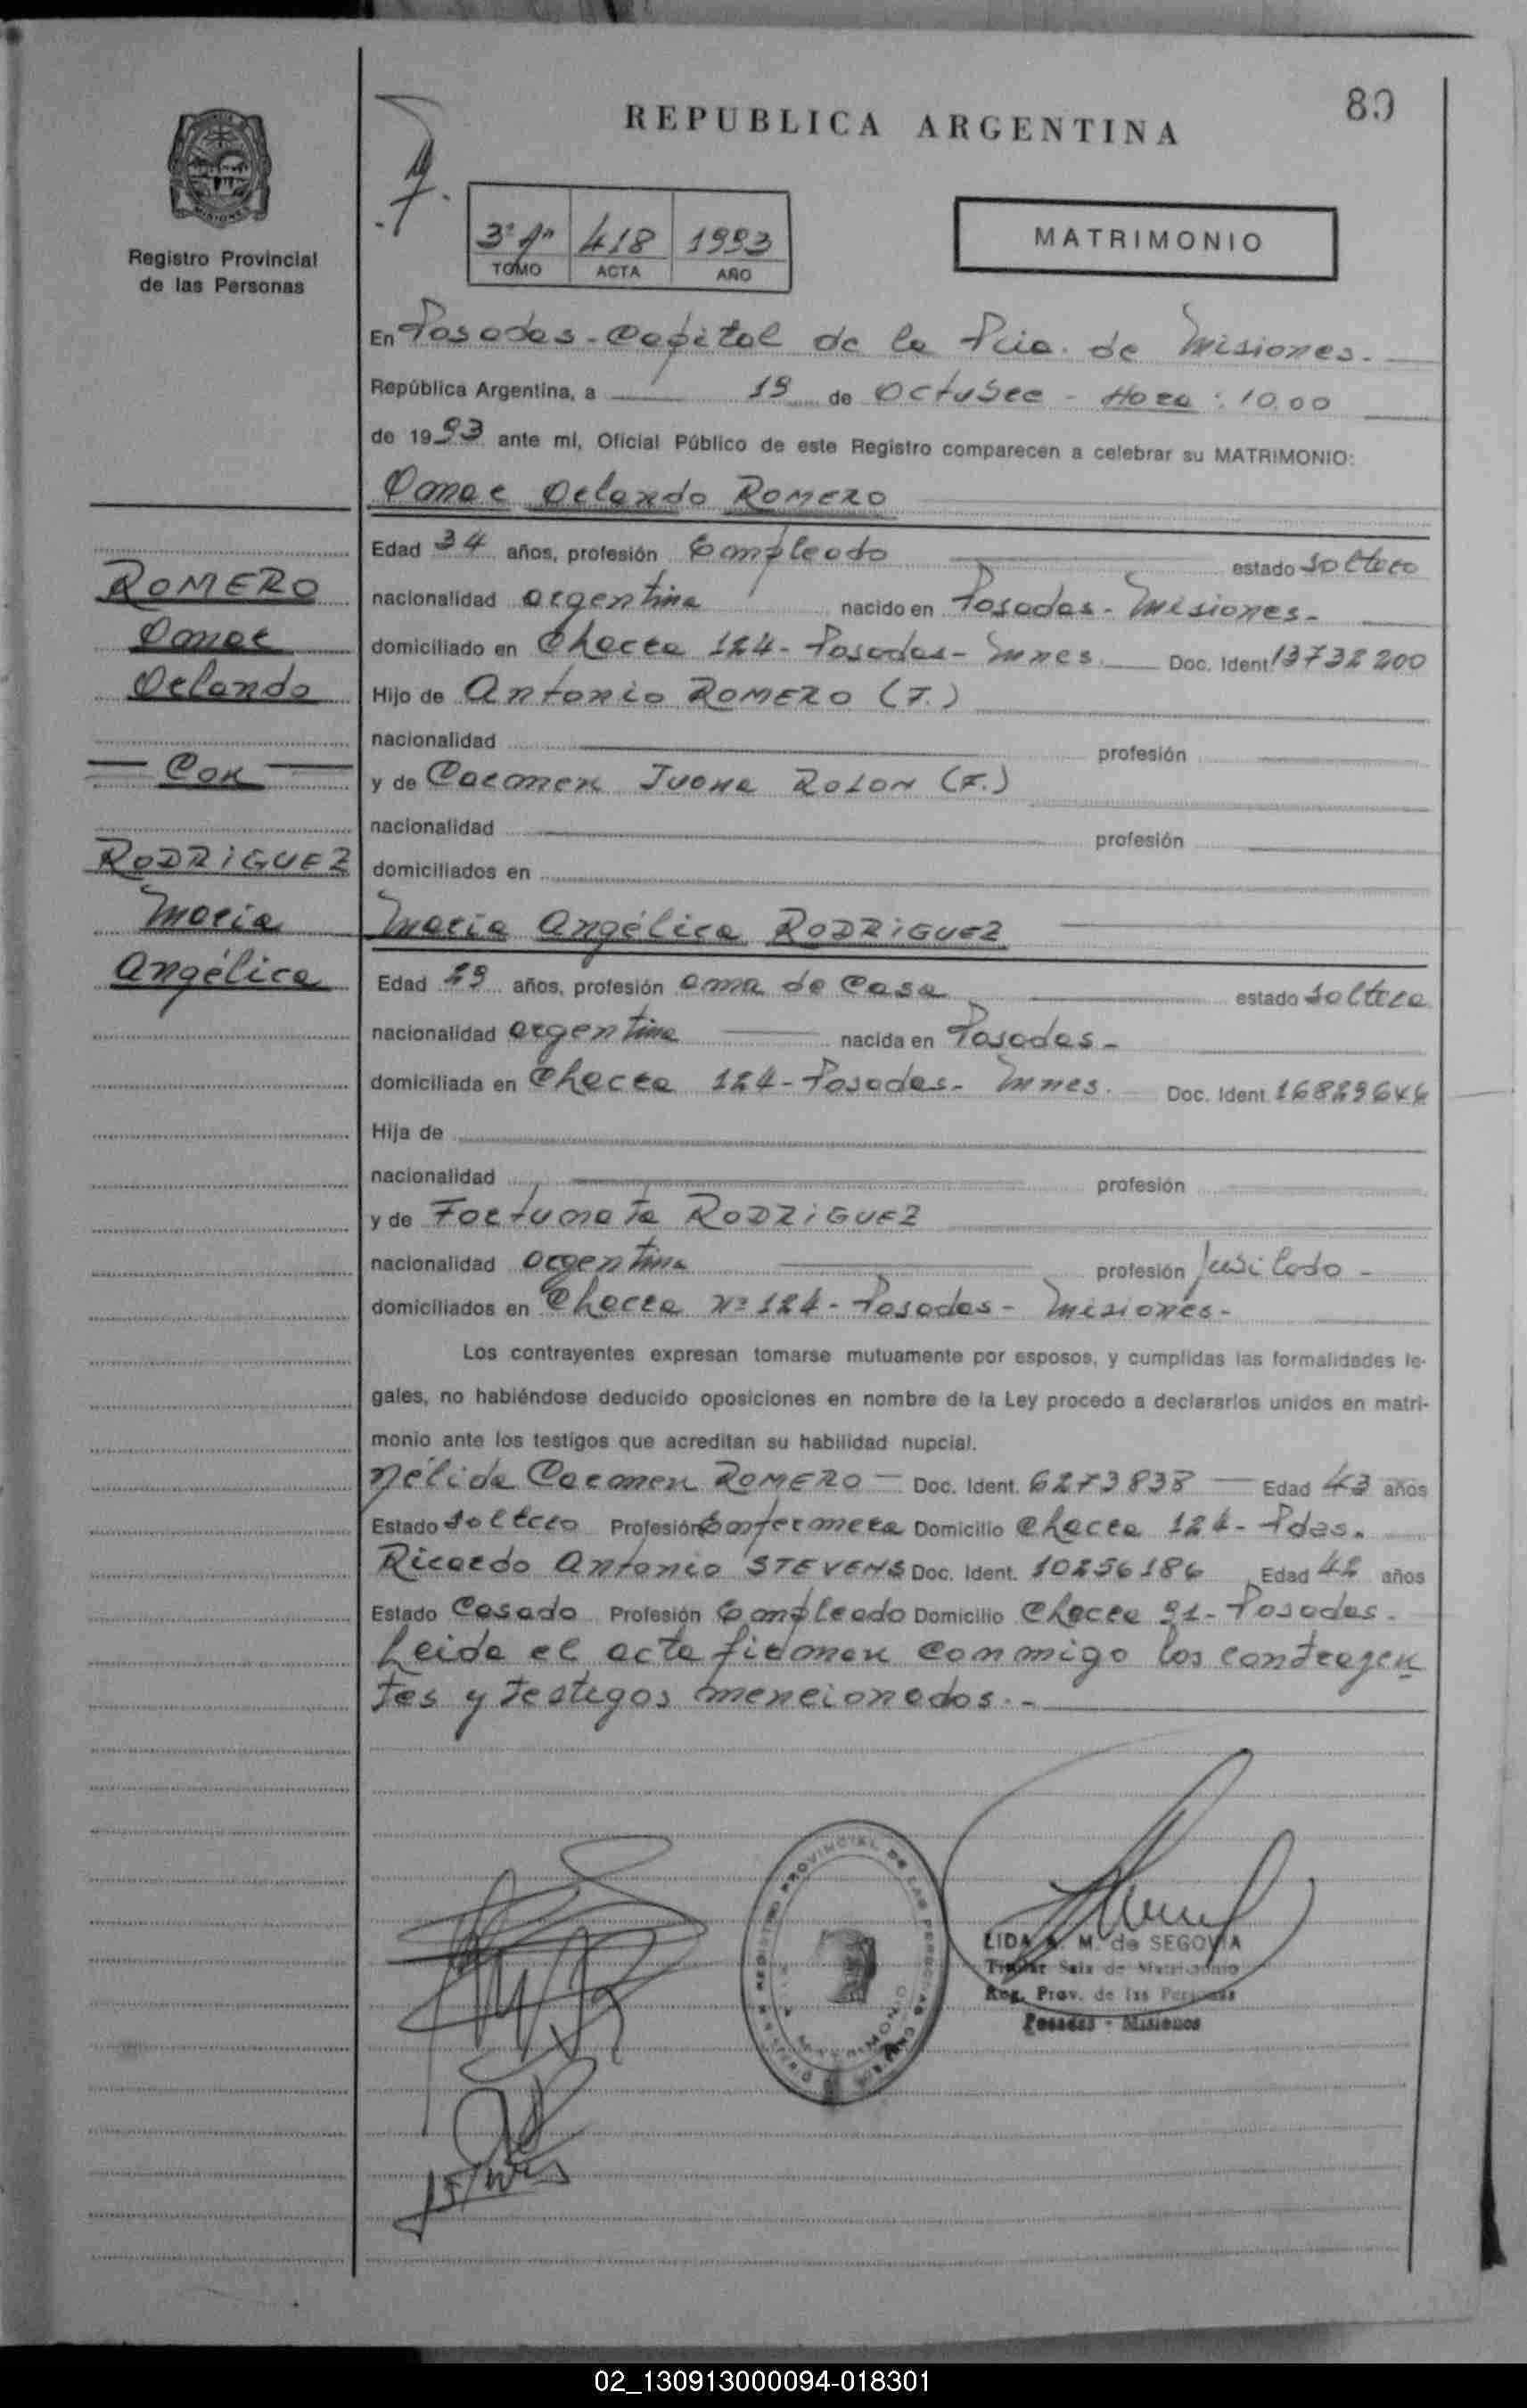 REPUBLICA ARGENTINA
Registro Provincial
de las Personas
3º Aº 418 1993
TOMO ACTA AÑO
MATRIMONIO
En Posadas - Capital de la Pcia. de Misiones.
República Argentina, a 19 de Octubre - Hora: 10.00
de 1993 ante mi, Oficial Público de este Registro comparecen a celebrar su MATRIMONIO:
Omar Orlando ROMERO
Edad 34 años, profesión Empleado estado soltero
nacionalidad argentina nacido en Posadas - Misiones-
domiciliado en Chacra 124- Posadas- Mnes. Doc. Ident 13732200
Hijo de Antonio ROMERO (F.)
nacionalidad profesión
y de Carmen Juana ROLON (F.)
nacionalidad profesión
domiciliados en
María Angélica RODRIGUEZ
Edad 29 años, profesión ama de casa estado soltera
nacionalidad argentina nacida en Posadas-
domiciliada en Chacra 124- Posadas- Mnes. Doc. Ident
Hija de
nacionalidad profesión
y de RODRIGUEZ
nacionalidad argentina profesión Jubilado-
domiciliados en Chacra Nº 124- Posadas- Misiones-
Los contrayentes expresan tomarse mutuamente por esposos, y cumplidas las formalidades le-
gales, no habiéndose deducido oposiciones en nombre de la Ley procedo a declararlos unidos en matri-
monio ante los testigos que acreditan su habilidad nupcial.
Nélida Carmen ROMERO - Doc. Ident. 6273838 Edad 43 años
Estado soltero Profesión Enfermera Domicilio Chacra 124- Pdas.
Ricardo Antonio STEVENS Doc. Ident. 10256186 Edad 42 años
Estado Casado Profesión Empleado Domicilio Chacra 91- Posadas.
Leida el acta firman conmigo los contrayen
tes y testigos mencionados.-
ROMERO
Omar
Orlando
Con
RODRIGUEZ
María
Angélica
REGISTRO PROVINCIAL DE LAS PERSONAS
LIDA M. de SEGOVIA
Titular Sala de Matrimonio
Reg. Prov. de las Personas
Posadas - Misiones
02_130913000094-018301